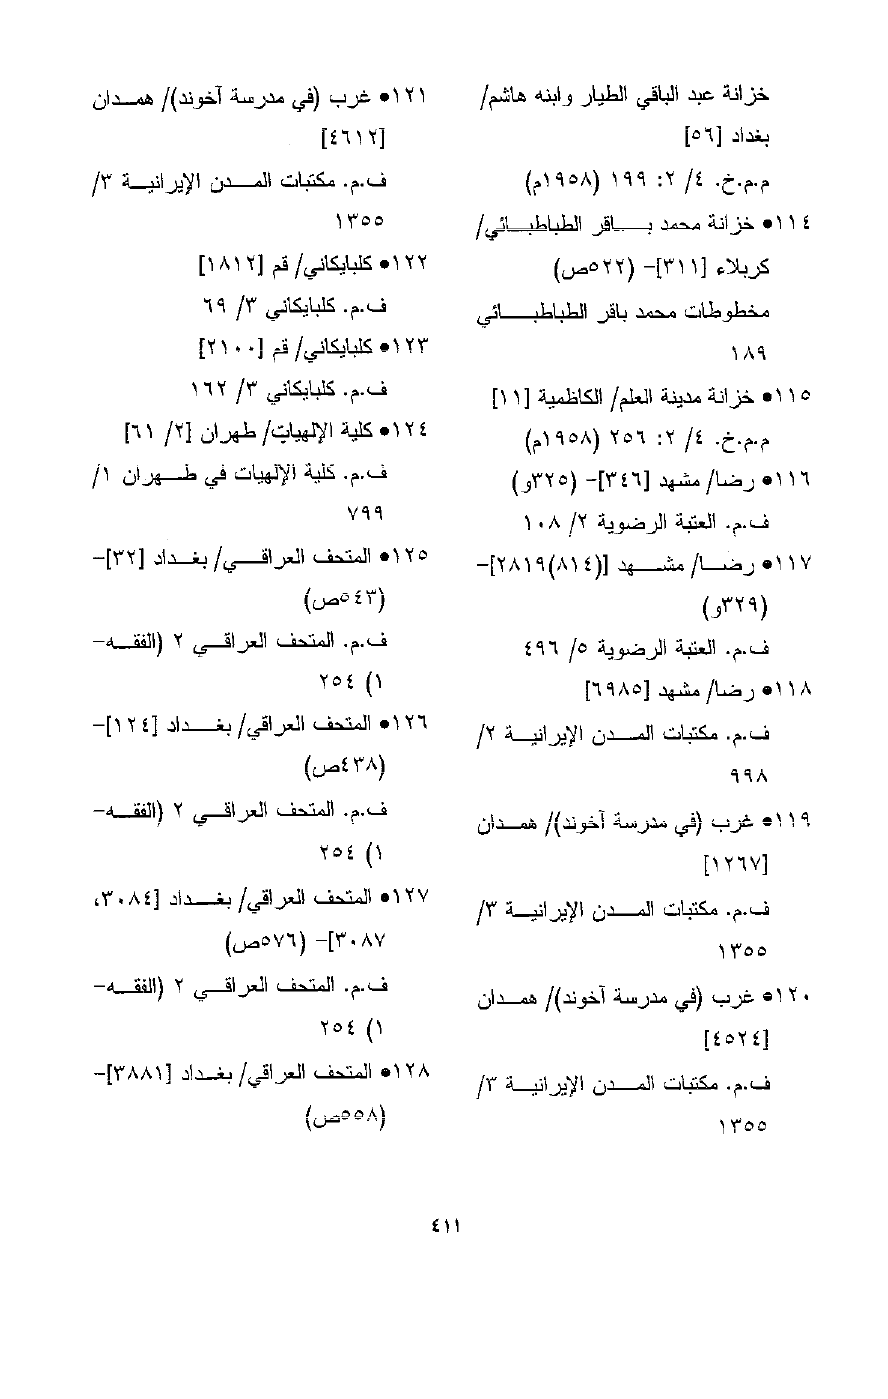 خزانة عبد الباقي الطيار وابنه هاشم/
بغداد [٥٦]
م.م.خ. ٤/ ٢: ١٩٩ (١٩٥٨م)
١١٤• خزانة محمد باقر الطباطبائي/
كربلاء [٣١١]- (٥٢٢ص)
مخطوطات محمد باقر الطباطبائي
١٨٩
١١٥• خزانة مدينة العلم/ الكاظمية [١١]
م.م.خ. ٤/ ٢: ٢٥٦ (١٩٥٨م)
١١٦• رضا/ مشهد [٣٤٦]- (٣٢٥و)
ف.م. العتبة الرضوية ٢/ ١٠٨
١١٧• رضا/ مشهد [(٨١٤)٢٨١٩]-
(٣٢٩و)
ف.م. العتبة الرضوية ٥/ ٤٩٦
١١٨• رضا/ مشهد [٦٩٨٥]
ف.م. مكتبات المدن الإيرانية ٢/
٩٩٨
١١٩• غرب (في مدرسة آخوند)/ همدان
[١٢٦٧]
ف.م. مكتبات المدن الإيرانية ٣/
١٣٥٥
١٢٠• غرب (في مدرسة آخوند)/ همدان
[٤٥٢٤]
ف.م. مكتبات المدن الإيرانية ٣/
١٣٥٥
١٢١• غرب (في مدرسة آخوند)/ همدان
[٤٦١٢]
ف.م. مكتبات المدن الإيرانية ٣/
١٣٥٥
١٢٢• كلبايكاني/ قم [١٨١٢]
ف.م. كلبايكاني ٣/ ٦٩
١٢٣• كلبايكاني/ قم [٢١٠٠]
ف.م. كلبايكاني ٣/ ١٦٢
١٢٤• كلية الإلهيات/ طهران [٢/ ٦١]
ف.م. كلية الإلهيات في طهران ١/
٧٩٩
١٢٥• المتحف العراقي/ بغداد [٣٢]-
(٥٤٣ص)
ف.م. المتحف العراقي ٢ (الفقه-
١) ٢٥٤
١٢٦• المتحف العراقي/ بغداد [١٢٤]-
(٤٣٨ص)
ف.م. المتحف العراقي ٢ (الفقه-
١) ٢٥٤
١٢٧• المتحف العراقي/ بغداد [٣٠٨٤،
٣٠٨٧]- (٥٧٦ص)
ف.م. المتحف العراقي ٢ (الفقه-
١) ٢٥٤
١٢٨• المتحف العراقي/ بغداد [٣٨٨١]-
(٥٥٨ص)
٤١١